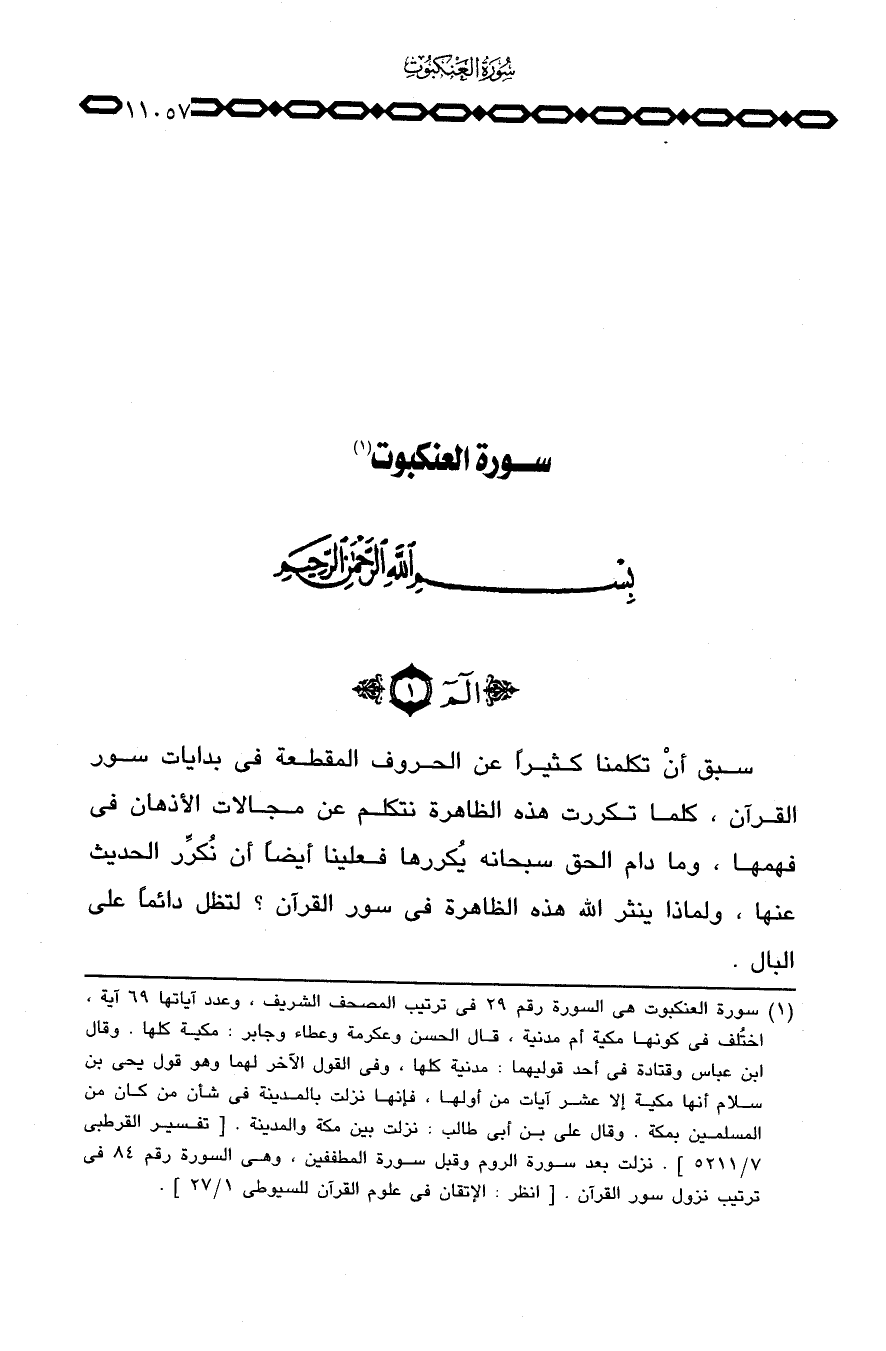 سُورَةُ العَنكَبُوتِ
١١٠٥٧
ســورة العنكبوت(١)
بِسْمِ اللَّهِ الرَّحْمَٰنِ الرَّحِيمِ
الٓمٓ ١
ســبق أنْ تكلمنا كـثيـراً عن الحـروف المقطـعة فى بدايات ســور
القـرآن ، كلمـا تـكررت هذه الظاهرة نتكلـم عن مـجـالات الأذهان فى
فهمهـا ، وما دام الحق سبحانه يُكررها فـعلينا أيضاً أن نُكرِّر الحديث
عنها ، ولماذا ينثر الله هذه الظاهرة فى سور القرآن ؟ لتظل دائماً على
البال .
(١) سورة العنكبوت هى السورة رقم ٢٩ فى ترتيب المصحف الشريف ، وعدد آياتها ٦٩ آية ،
اختُلف فى كونهـا مكية أم مدنية ، قـال الحسن وعكرمة وعطاء وجابر : مكيـة كلها . وقال
ابن عباس وقتادة فى أحد قوليهما : مدنية كلها ، وفى القول الآخر لهما وهو قول يحى بن
ســلام أنها مكيـة إلا عشـر آيات من أولهـا ، فإنهـا نزلت بالمـدينة فى شأن من كـان من
المسلمـين بمكة . وقال على بـن أبى طالب : نزلت بين مكة والمدينة . [ تفـسيـر القرطبى
٥٢١١/٧ ] . نزلت بعد ســورة الروم وقبل سـورة المطففين ، وهـى السورة رقم ٨٤ فى
ترتيب نزول سور القرآن . [ انظر : الإتقان فى علوم القرآن للسيوطى ٢٧/١ ] .